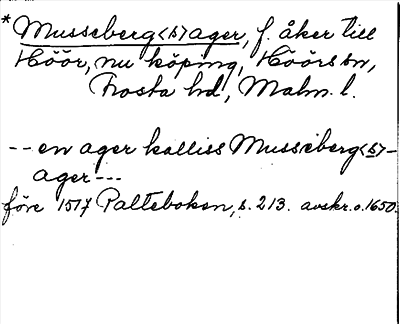 * Musseberg<s>ager, f. åker till
Höör, nu köping, Höörs sn,
Frosta hd, Malm. l.
-- en ager kalliss Musseberg<s>-
ager ---
före 1517 Palteboken, s. 213. avskr. o. 1650.